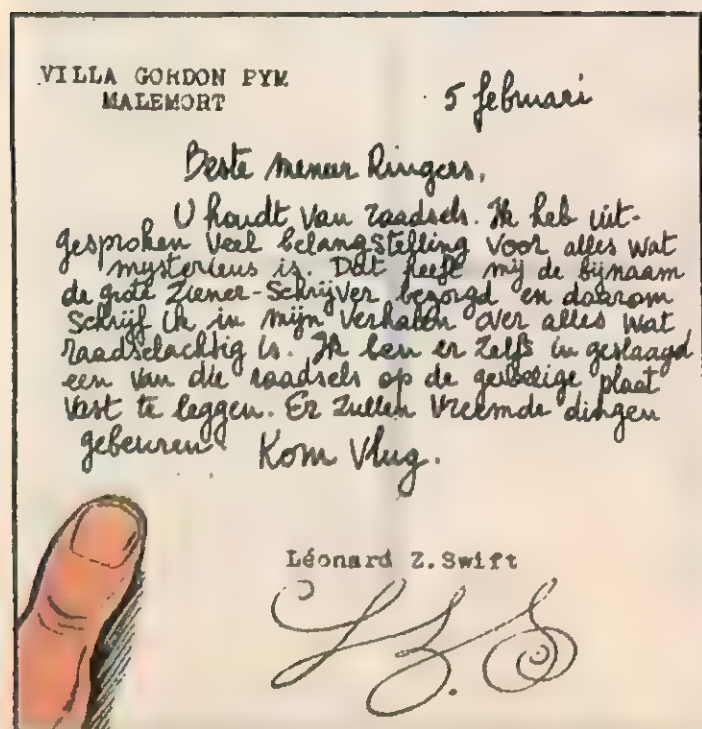 VILLA GORDON PYM
MALEMORT
5 februari
Beste meneer Ringers,
U houdt van raadsels. Ik heb uit-
gesproken veel belangstelling voor alles wat
mysterieus is. Dat heeft mij de bijnaam
de grote Ziener-Schrijver bezorgd en daarom
schrijf ik in mijn verhalen over alles wat
raadselachtig is. Ik ben er zelfs in geslaagd
een van die raadsels op de gevoelige plaat
vast te leggen. Er zullen vreemde dingen
gebeuren. Kom vlug.
Léonard Z. Swift
LZS